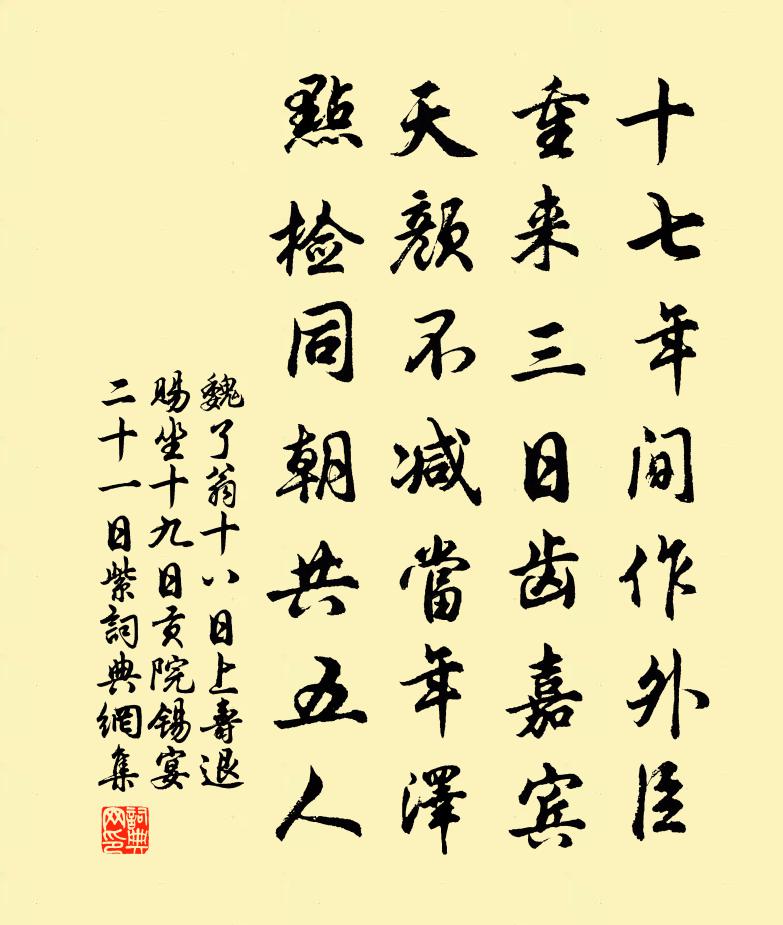 十七年间作外臣
重来三日齿嘉宾
天颜不减當年澤
點检同朝共五人
魏了翁十八日上壽退
賜坐十九日贡院锡宴
二十一日紫詞典網集
詞典
网印